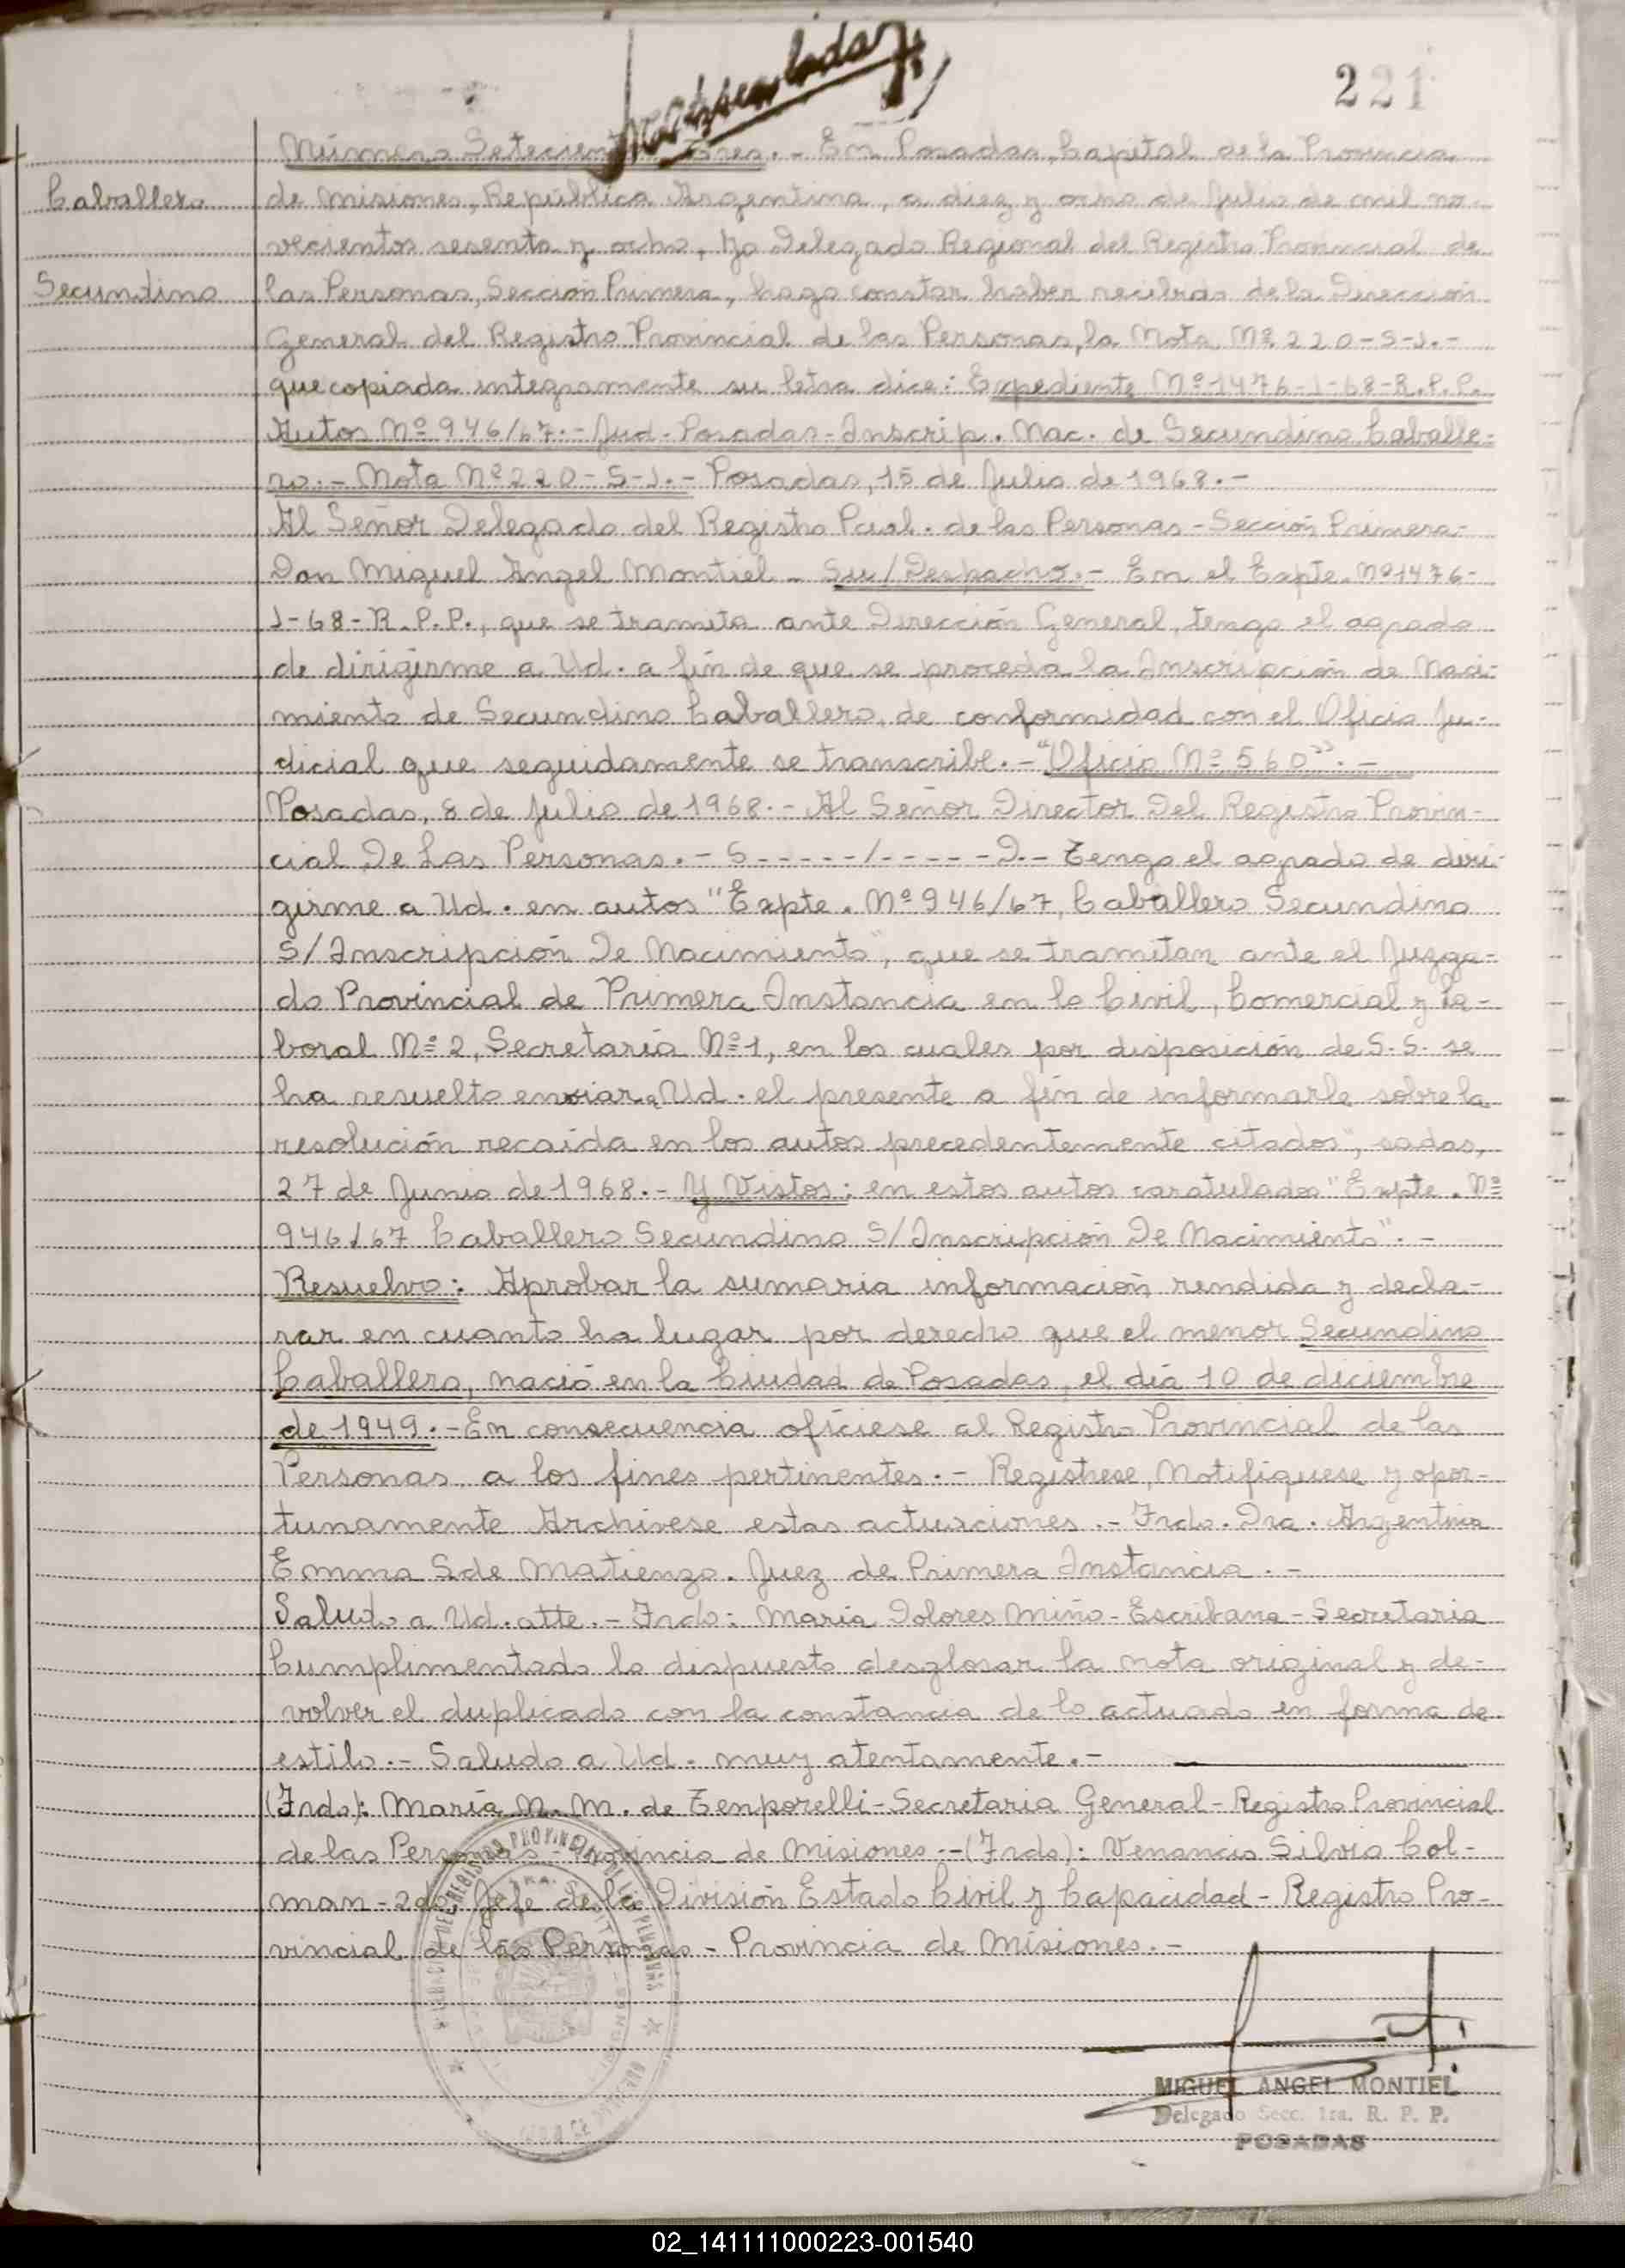 221
Número Setecientos Tres.- En Posadas, Capital de la Provincia
Caballero
de Misiones, República Argentina, a diez y ocho de Julio de mil no-
vecientos sesenta y ocho, Yo Delegado Regional del Registro Provincial de
Secundino
las Personas, Sección Primera, hago constar haber recibido de la Dirección
General del Registro Provincial de las Personas, la Nota Nº 220-S-J.-
que copiada integramente su letra dice: Expediente Nº 1476-J-68-R.P.P.
Autos Nº 946/67.- Jud-Posadas-Inscrip. Nac. de Secundino Caballe-
ro.- Nota Nº 220-S-J.- Posadas, 15 de Julio de 1968.-
Al Señor Delegado del Registro Pcial. de las Personas - Sección Primera-
Don Miguel Angel Montiel - Su/Despacho.- En el Expte. Nº 1476-
J-68-R.P.P., que se tramita ante Dirección General, tengo el agrado
de dirigirme a Ud. a fin de que se proceda la Inscripción de Naci-
miento de Secundino Caballero, de conformidad con el Oficio Ju-
dicial que seguidamente se transcribe.- "Oficio Nº 560".-
Posadas, 8 de Julio de 1968.- Al Señor Director Del Registro Provin-
cial De Las Personas.- S-----/-----D.- Tengo el agrado de diri-
girme a Ud. en autos "Expte. Nº 946/67, Caballero Secundino
S/Inscripción De Nacimiento", que se tramitan ante el Juzga-
do Provincial de Primera Instancia en lo Civil, Comercial y La-
boral Nº 2, Secretaría Nº 1, en los cuales por disposición de S.S. se
ha resuelto enviar a Ud. el presente a fin de informarle sobre la
resolución recaída en los autos precedentemente citados", sadas,
27 de Junio de 1968.- Y Vistos: en estos autos caratulados "Expte. Nº
946/67 Caballero Secundino S/Inscripción De Nacimiento".-
Resuelvo: Aprobar la sumaria información rendida y decla-
rar en cuanto ha lugar por derecho que el menor Secundino
Caballero, nació en la Ciudad de Posadas, el día 10 de diciembre
de 1949.- En consecuencia ofíciese al Registro Provincial de las
Personas, a los fines pertinentes.- Registrese, Notifíquese y opor-
tunamente Archívese estas actuaciones.- Frdo. Dra. Argentina
Emma S de Matienzo. Juez de Primera Instancia.-
Saludo a Ud. atte.- Frdo: María Dolores Miño - Escribana - Secretaria
Cumplimentado lo dispuesto desglosar la nota original y de-
volver el duplicado con la constancia de lo actuado en forma de
estilo.- Saludo a Ud. muy atentamente.-
(Frdo): María N. M. de Tenporelli - Secretaria General - Registro Provincial
de las Personas - Provincia de Misiones.- (Frdo): Venancio Silvio Col-
man - 2do Jefe de la División Estado Civil y Capacidad - Registro Pro-
vincial de las Personas - Provincia de Misiones.-
MIGUEL ANGEL MONTIEL
Delegado Secc. 1ra. R. P. P.
POSADAS
02_141111000223-001540